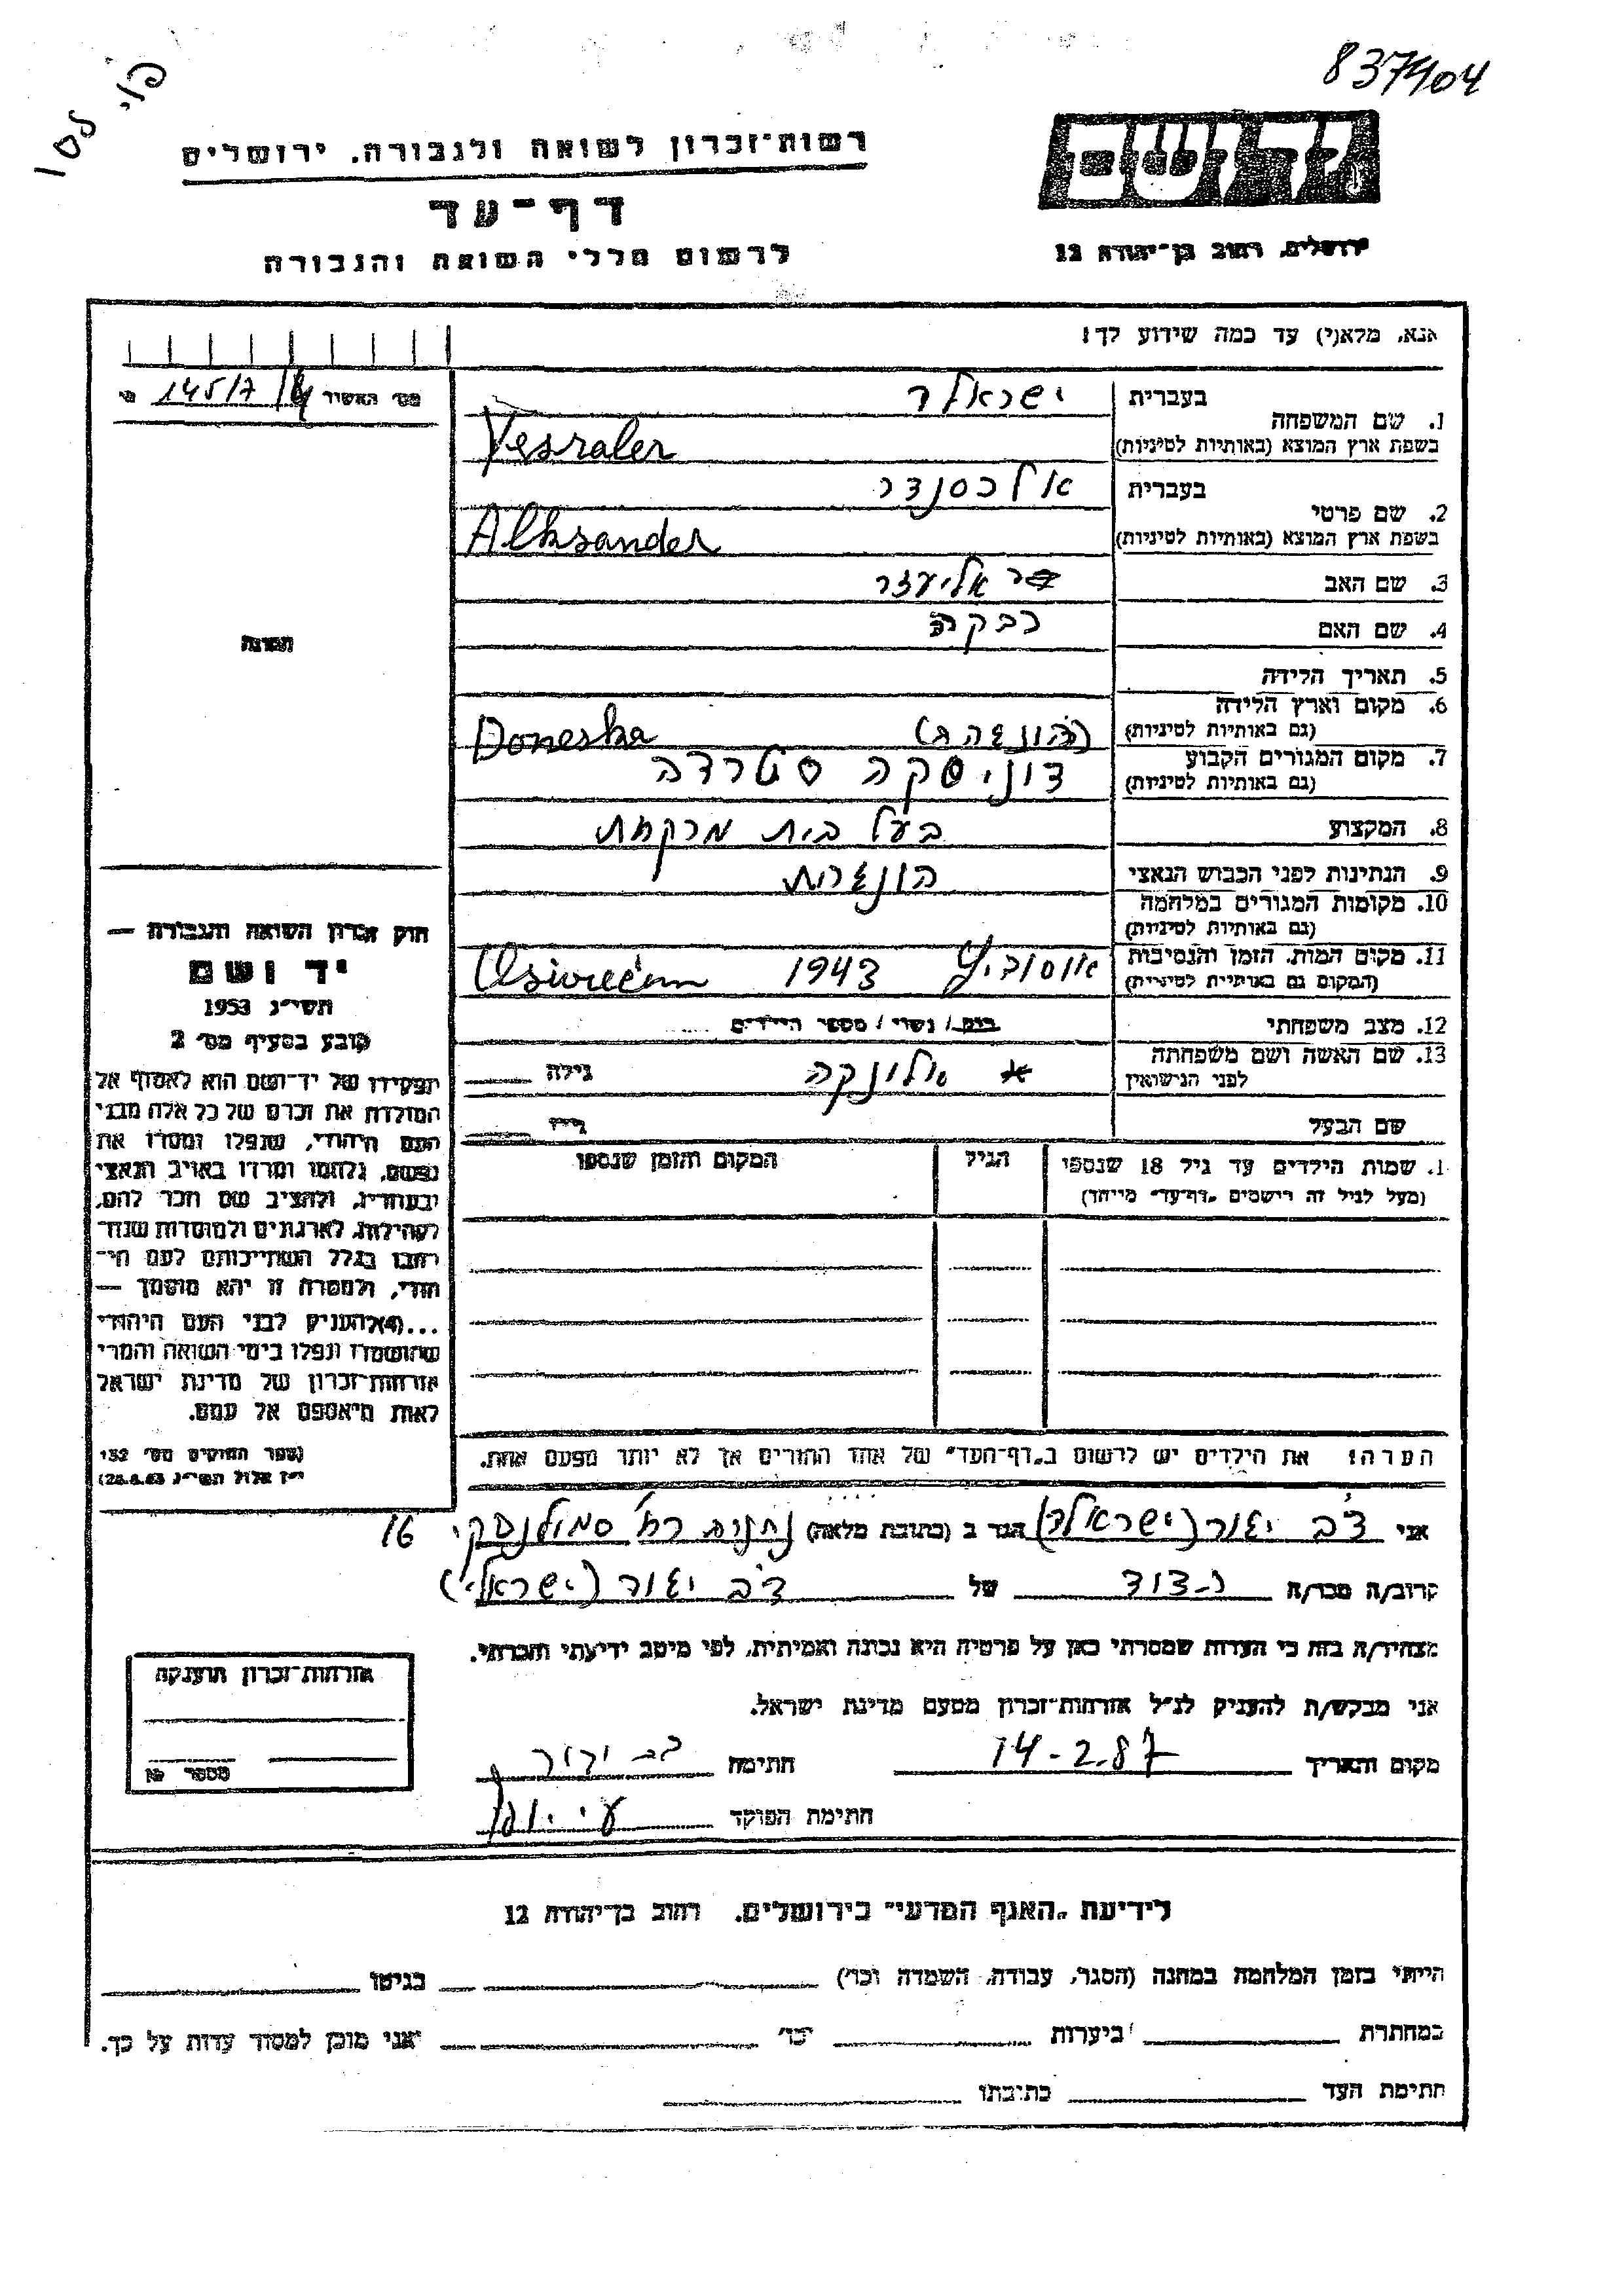 837904
רשות־זכרון לשואה ולגבורה. ירושלים
דף־עד
לרשום חללי השואה והגבורה
ירושלים, רחוב בן־יהודה 12
אנא, מלא(י) עד כמה שידוע לך!
מס' האשיר 14517
1. שם המשפחה
בעברית ישראלר
בשפת ארץ המוצא (באותיות לטיניות) Yesraler
2. שם פרטי
בעברית אלכסנדר
בשפת ארץ המוצא (באותיות לטיניות) Alksander
3. שם האב אליעזר
4. שם האם רבקה
5. תאריך הלידה
6. מקום וארץ הלידה
(גם באותיות לטיניות) Doneska
7. מקום המגורים הקבוע
(גם באותיות לטיניות) דוניסקה סטרדה
8. המקצוע בעל בית מרקחת
9. הנתינות לפני הכבוש הנאצי הונגרית
10. מקומות המגורים במלחמה
(גם באותיות לטיניות)
11. מקום המות, הזמן והנסיבות
(המקום גם באותיות לטיניות) אוסוביץ 1943
12. מצב משפחתי רווק / נשוי / מספר הילדים
13. שם האשה ושם משפחתה
לפני הנישואין אלונקה גילה
שם הבעל גילו
1. שמות הילדים עד גיל 18 שנספו הגיל המקום והזמן שנספו
(מעל לגיל זה רישמים "דף־עד" מייחד)
הערה: את הילדים יש לרשום ב"דף־העד" של אחד ההורים אך לא יותר מפעם אחת.
תמונה
חוק זכרון השואה והגבורה —
יד ושם
תשי"ג 1953
קובע בסעיף מס' 2
תפקידו של יד־ושם הוא לאסוף אל
המולדת את זכרם של כל אלה מבני
העם היהודי, שנפלו ומסרו את
נפשם, נלחמו ומרדו באויב הנאצי
ובעוזריו, ולהציב שם וזכר להם,
לקהילות, לארגונים ולמוסדות שנח־
רבו בגלל השתייכותם לעם הי־
הודי, ולמטרה זו יהא מוסמך —
...(4) להעניק לבני העם היהודי
שהושמדו ונפלו בימי השואה והמרי
אזרחות־זכרון של מדינת ישראל
לאות היאספם אל עמם.
(ספר החוקים מס' 132
י"ז אלול תשי"ג 28.8.53)
אני דב יגור (ישראלר) הגר ב (כתובת מלאה) רח' סמולנסקי 16
קרוב/ה מכר/ה דוד של דב יגור
מצהיר/ה בזה כי העדות שמסרתי כאן על פרטיה היא נכונה ואמיתית, לפי מיטב ידיעתי והכרתי.
אני מבקש/ת להעניק לנ"ל אזרחות־זכרון מטעם מדינת ישראל.
מקום ותאריך 14-2.87 חתימה דב יגור
חתימת הפוקד
אזרחות־זכרון הוענקה
מספר
לידיעת "האגף המדעי" בירושלים. רחוב בן־יהודה 12
הייתי בזמן המלחמה במחנה (הסגר, עבודה, השמדה וכו') בגיטו
במחתרת ביערות וכו' אני מוכן למסור עדות על כך.
חתימת העד כתובתו